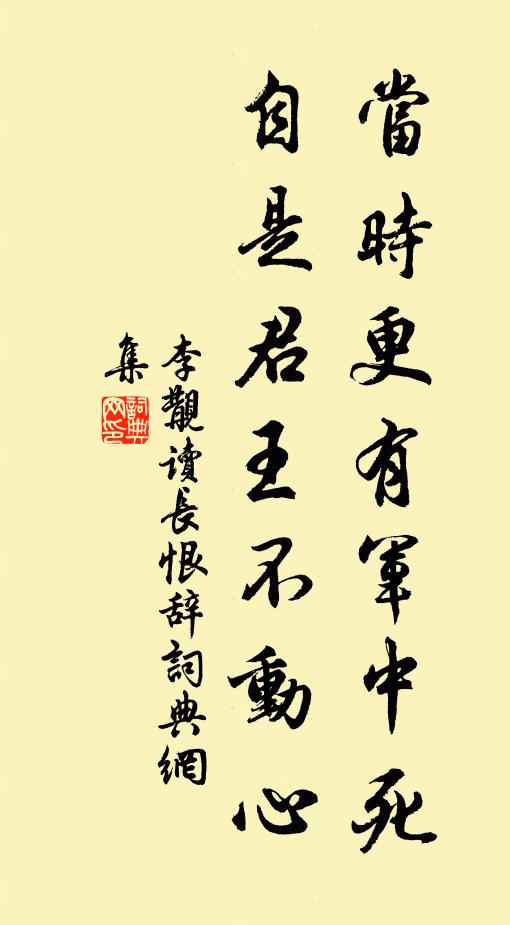 當時更有軍中死
自是君王不動心
李覯读長恨辞詞典網
集
詞典网印